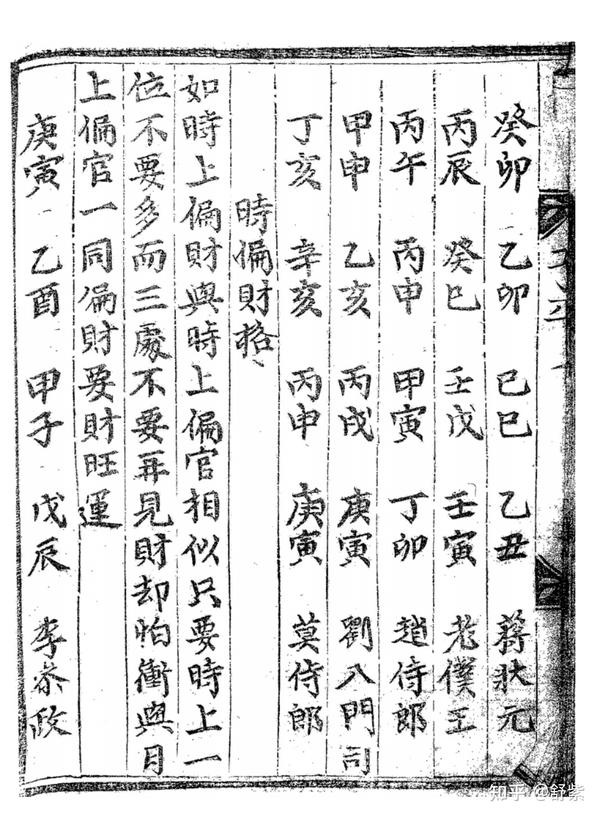 癸卯 乙卯 己巳 乙丑 蔣狀元
丙辰 癸巳 壬戌 壬寅 老僕王
丙午 丙申 甲寅 丁卯 趙侍郎
甲申 乙亥 丙戌 庚寅 劉八門司
丁亥 辛亥 丙申 庚寅 莫侍郎
時偏財格
如時上偏財與時上偏官相似只要時上一
位不要多而三處不要再見財却怕衝與月
上偏官一同偏財要財旺運
庚寅 乙酉 甲子 戊辰 李叅政
知乎 @舒紫